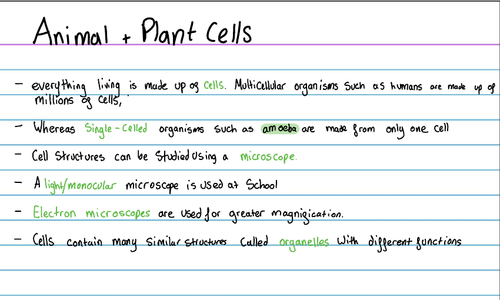 Animal + Plant Cells
- everything living is made up of cells. Multicellular organisms such as humans are made up of
millions of cells,
- Whereas Single-celled organisms such as amoeba are made from only one cell
- Cell structures can be studied using a microscope.
- A light/monocular microscope is used at School
- Electron microscopes are used for greater magnigication.
- Cells contain many similar structures called organelles with different functions